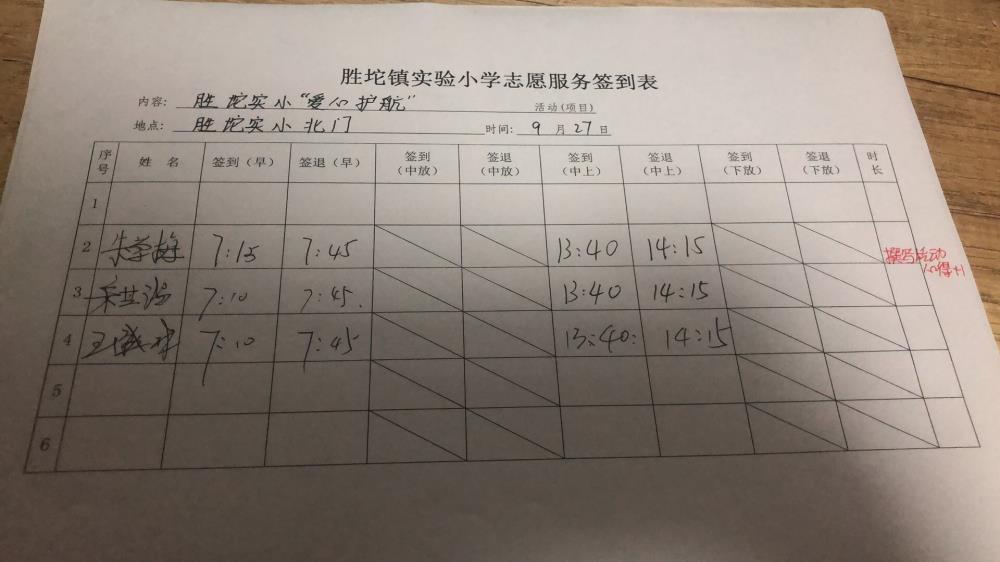 胜坨镇实验小学志愿服务签到表
内容: 胜坨实小“爱心护航” 活动(项目)
地点: 胜坨实小北门 时间: 9月27日
序号 姓名 签到(早) 签退(早) 签到(中放) 签退(中放) 签到(中上) 签退(中上) 签到(下放) 签退(下放) 时长
1
2 7:15 7:45 13:40 14:15 撰写活动心得+1
3 7:10 7:45. 13:40 14:15
4 7:10 7:45 13:40: 14:15
5
6